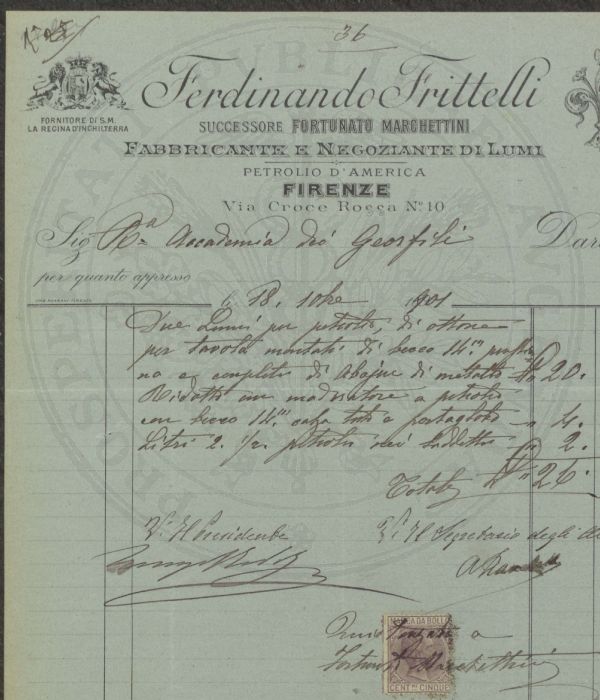 36
Ferdinando Frittelli
FORNITORE DI S.M.
LA REGINA D'INGHILTERRA
SUCCESSORE FORTUNATO MARCHETTINI
FABBRICANTE E NEGOZIANTE DI LUMI
PETROLIO D'AMERICA
FIRENZE
Via Croce Rossa No. 10
Sig Ra Accademia dei Georfili Dare
per quanto appresso
li 18. 10bre 1901
Due Lumi per petrolio, di ottone
per tavola montati di becco 14"
no e completi di Abajur di metallo 20.
Ridotto un moderatore a petrolio
con becco 14" 4.
Litri 2. 1/2 petrolio nei suddetti 2.
Totale 26.
Vo Il Presidente Vo Il Segretario degli
MARCA DA BOLLO
a
Fortunato Marchettini
CENT.mi CINQUE